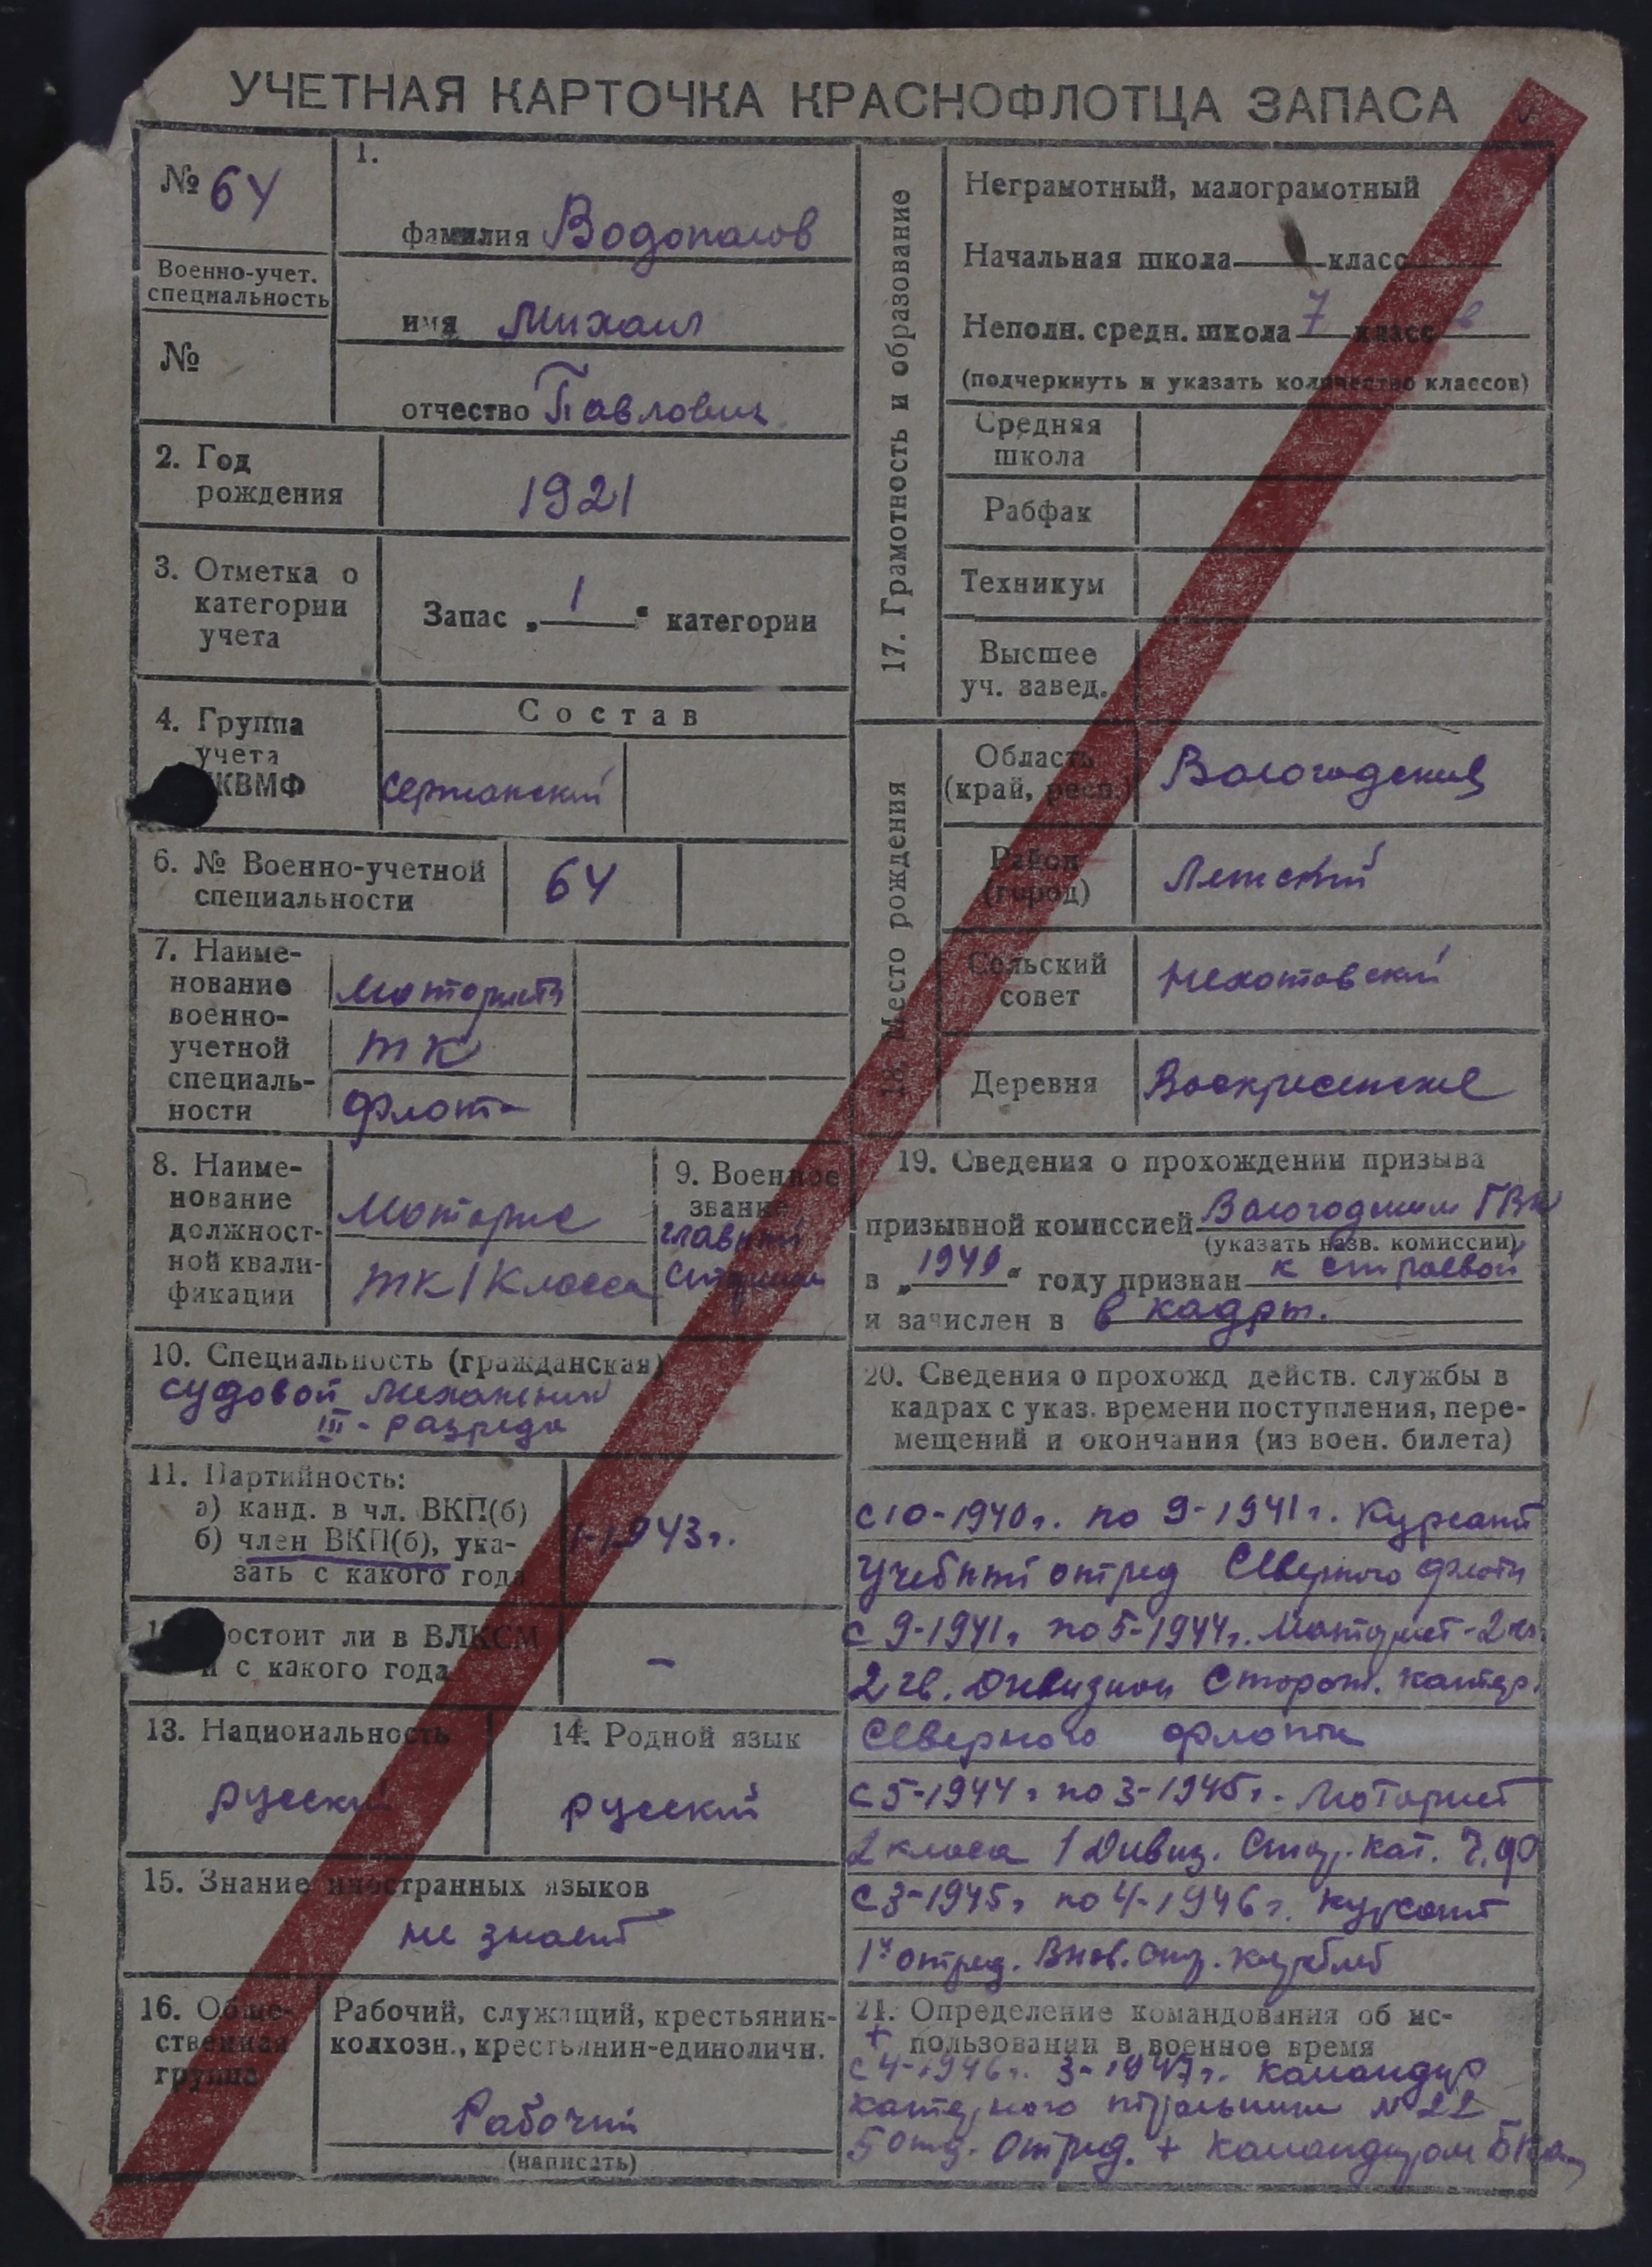 УЧЕТНАЯ КАРТОЧКА КРАСНОФЛОТЦА ЗАПАСА
№ 64
Военно-учет.
специальность
№
1.
фамилия Водопалов
имя Михаил
отчество Павлович
2. Год
рождения
1921
3. Отметка о
категории
учета
Запас „ 1 “ категории
4. Группа
учета
КВМФ
Состав
сержанский
6. № Военно-учетной
специальности
64
7. Наиме-
нование
военно-
учетной
специаль-
ности
Мотористы
ТК
Флота
8. Наиме-
нование
должност-
ной квали-
фикации
Моторис
ТК 1 Класса
9. Военное
звание
главный
старшина
10. Специальность (гражданская)
судовой механник
III - разряда
11. Партийность:
а) канд. в чл. ВКП(б)
б) член ВКП(б), ука-
зать с какого года
1-1943 г.
остоит ли в ВЛКСМ
и с какого года
-
13. Национальность
русский
14. Родной язык
русский
15. Знание иностранных языков
не знает
16. Обще-
ственная
группа
Рабочий, служащий, крестьянин-
колхозн., крестьянин-единоличн.
Рабочий
(написать)
17. Грамотность и образование
Неграмотный, малограмотный
Начальная школа класс
Неполн. средн. школа 7 класс в
(подчеркнуть и указать количество классов)
Средняя
школа
Рабфак
Техникум
Высшее
уч. завед.
18. Место рождения
Область
(край, респ.)
Вологодская
Район
(город)
Лежский
Сельский
совет
Деревня
Воскресенское
19. Сведения о прохождении призыва
призывной комиссией Вологодским ГВК
(указать назв. комиссии)
в „ 1940 “ году признан к строевой
и зачислен в в кадры.
20. Сведения о прохожд действ. службы в
кадрах с указ. времени поступления, пере-
мещений и окончания (из воен. билета)
с 10-1940 г. по 9-1941 г. Курсант
Учебный отряд Северного флота
с 9-1941 г. по 5-1944 г. Моторист-2 кл.
2 гв. Дивизион Сторож. катер.
Северного флота
с 5-1944 г. по 3-1945 г. Моторист
2 класа 1 Дивиз. Стор. Кат. Ч.Ф
с 3-1945 г. по 4-1946 г. курсант
1й отряд. Внов. стр. кораблей
21. Определение командования об ис-
пользовании в военное время
+
с 4-1946 г. 3-1947 г. командир
катерного тральщика № 22
5 отд. Отряд. + командиром